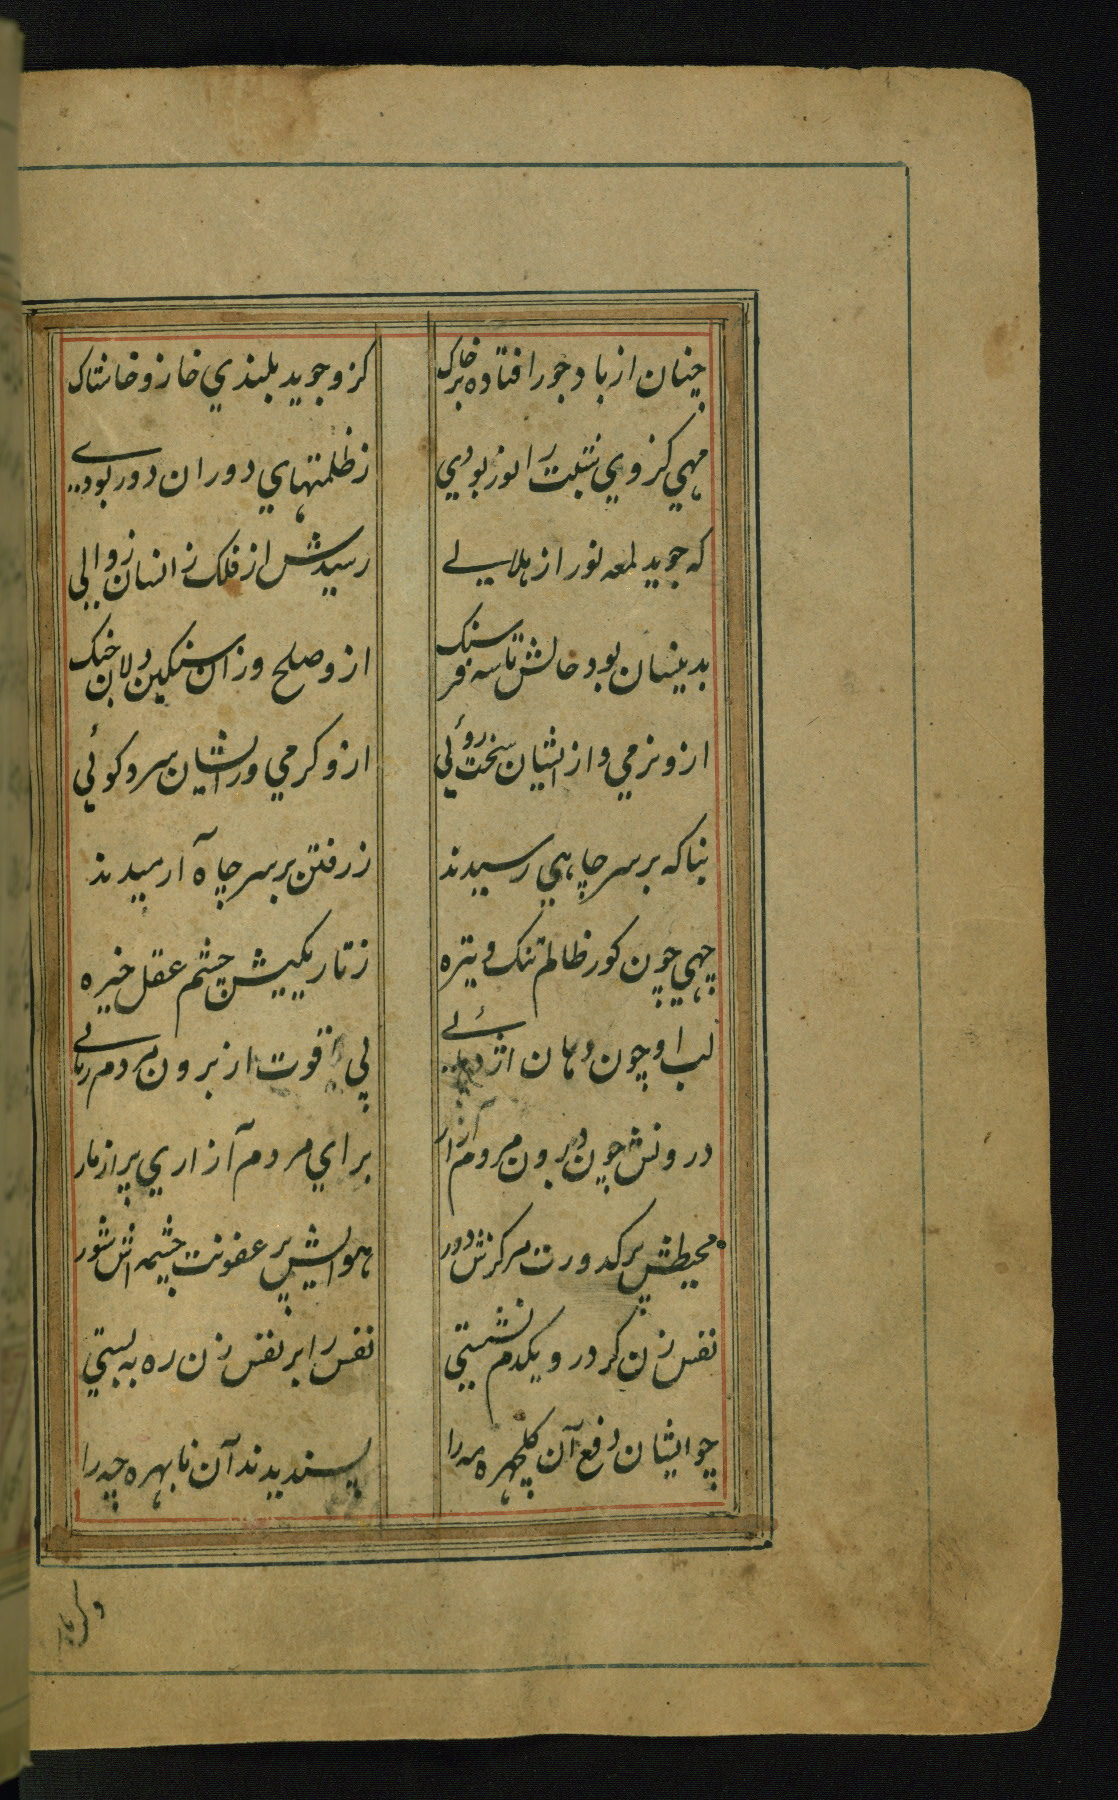 چنان از باد جور افتاده بر خاک
کزو جوید بلندي خار و خاشاک
مهي کز وي شبت را نور بودي
ز ظلمتهاي دوران دور بودے
که جوید لمعه نور از هلالے
رسیدش از فلک زانسان زوالي
بدینسان بود حالش تا سه فرسنک
ازو صلح وزان سنکین دلان جنک
ازو نرمي و از ایشان سخت روئي
ازو کرمي و زایشان سرد کوئي
بناکه بر سر چاهي رسیدند
ز رفتن بر سر چاه آرمیدند
چهي چون کور ظالم تنک و تیره
ز تاریکیش چشم عقل خیره
لب او چون دهان اژدهائے
پي قوت از برون مردم ربائے
درونش چون درون مردم آزار
براي مردم آزاري پر از مار
محیطش پر کدورت مرکزش دور
هوایش پر عفونت چشمه اش شور
نفس زن کر درو یکدم نشستي
نفس را بر نفس زن ره به بستي
چو ایشان دفع آن کلچهره مه را
پسندیدند آن نابهره چه را
دکر بار